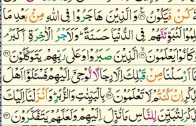 كُنْ فَيَكُونُ ۝ وَالَّذِينَ هَاجَرُوا فِي اللَّهِ مِنْ بَعْدِ مَا
ظُلِمُوا لَنُبَوِّئَنَّهُمْ فِي الدُّنْيَا حَسَنَةً وَلَأَجْرُ الْآخِرَةِ أَكْبَرُ
لَوْ كَانُوا يَعْلَمُونَ ۝ الَّذِينَ صَبَرُوا وَعَلَى رَبِّهِمْ يَتَوَكَّلُونَ ۝
وَمَا أَرْسَلْنَا مِنْ قَبْلِكَ إِلَّا رِجَالًا نُوحِي إِلَيْهِمْ فَاسْأَلُوا أَهْلَ
الذِّكْرِ إِنْ كُنْتُمْ لَا تَعْلَمُونَ ۝ بِالْبَيِّنَاتِ وَالزُّبُرِ وَأَنْزَلْنَا إِلَيْكَ
الذِّكْرَ لِتُبَيِّنَ لِلنَّاسِ مَا نُزِّلَ إِلَيْهِمْ وَلَعَلَّهُمْ يَتَفَكَّرُونَ ۝